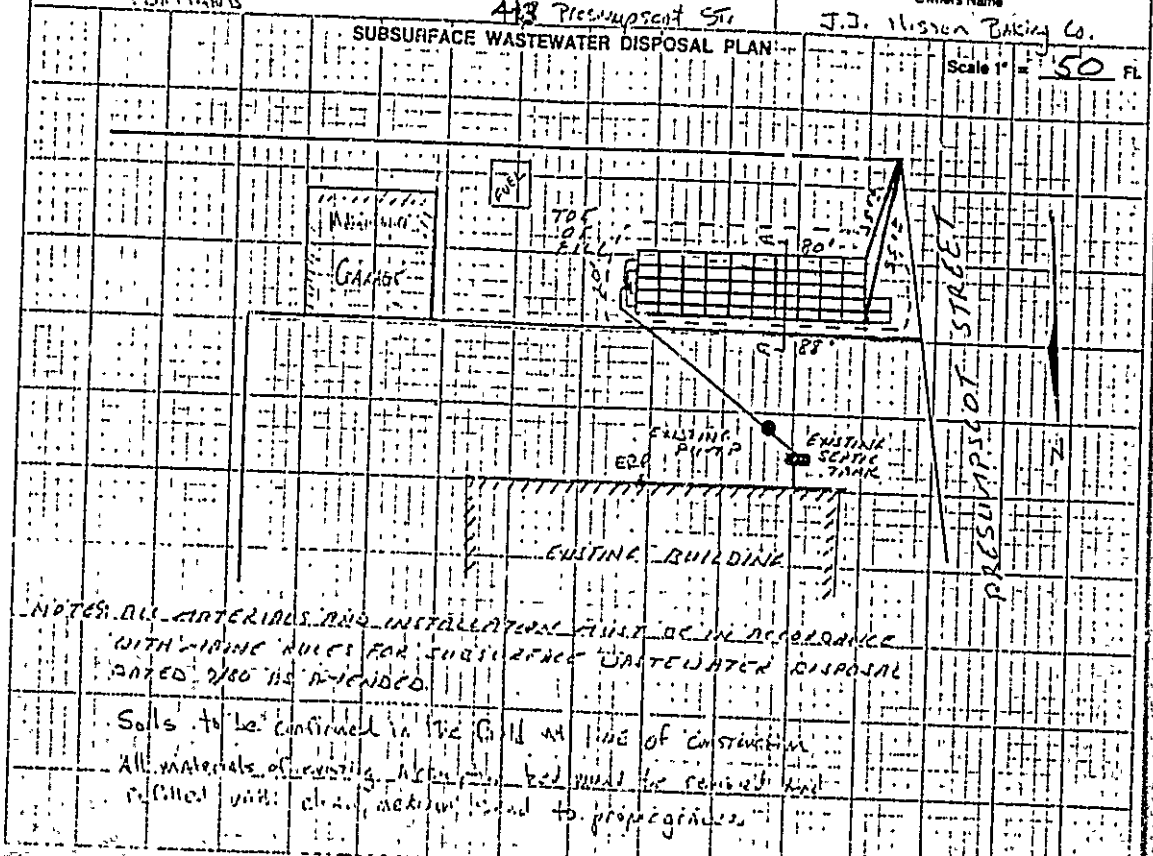 Owners Name
413 Presumpscot St.
J.J. Nissen Baking Co.
SUBSURFACE WASTEWATER DISPOSAL PLAN
Scale 1" = 50 Ft.
FUEL
TOE
OF
FILL
80'
GARAGE
88'
PRESUMPSCOT STREET
EXISTING
PUMP
EXISTING
SEPTIC
TANK
ERP
N
EXISTING BUILDING
NOTES: ALL MATERIALS AND INSTALLATION MUST BE IN ACCORDANCE
WITH MAINE RULES FOR SUBSURFACE WASTEWATER DISPOSAL
DATED AS AMENDED.
Soils to be confirmed in the field at time of construction
All materials of existing bed must be removed and
refilled with clean, medium sand to